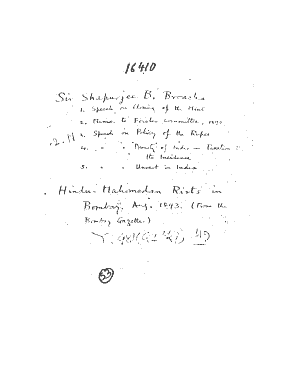 16410
Sir Shapurjee B. Broacha
1. Speech on Closing of the Mint
2. Memo. to Fowler Committee, 1898.
3. Speech on Policy of the Rupee
4. " " Poverty of India or Taxation &
its Incidence
5. " " Unrest in India
Hindu-Mahomedan Riots in
Bombay. Aug. 1893. (From the
Bombay Gazette.)
53